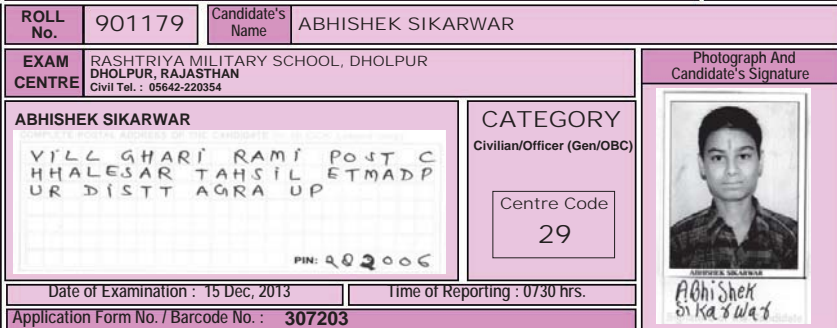 ROLL No. 901179 Candidate's Name ABHISHEK SIKARWAR
EXAM CENTRE
RASHTRIYA MILITARY SCHOOL, DHOLPUR
DHOLPUR, RAJASTHAN
Civil Tel. : 05642-220354
Photograph And
Candidate's Signature
ABHISHEK SIKARWAR
VILL GHARI RAMI POST C
HHALESAR TAHSIL ETMADP
UR DISTT AGRA UP
PIN: 282006
CATEGORY
Civilian/Officer (Gen/OBC)
Centre Code
29
ABHISHEK SIKARWAR
ABhiShek
Sikarwar
Date of Examination : 15 Dec, 2013
Time of Reporting : 0730 hrs.
Application Form No. / Barcode No. : 307203